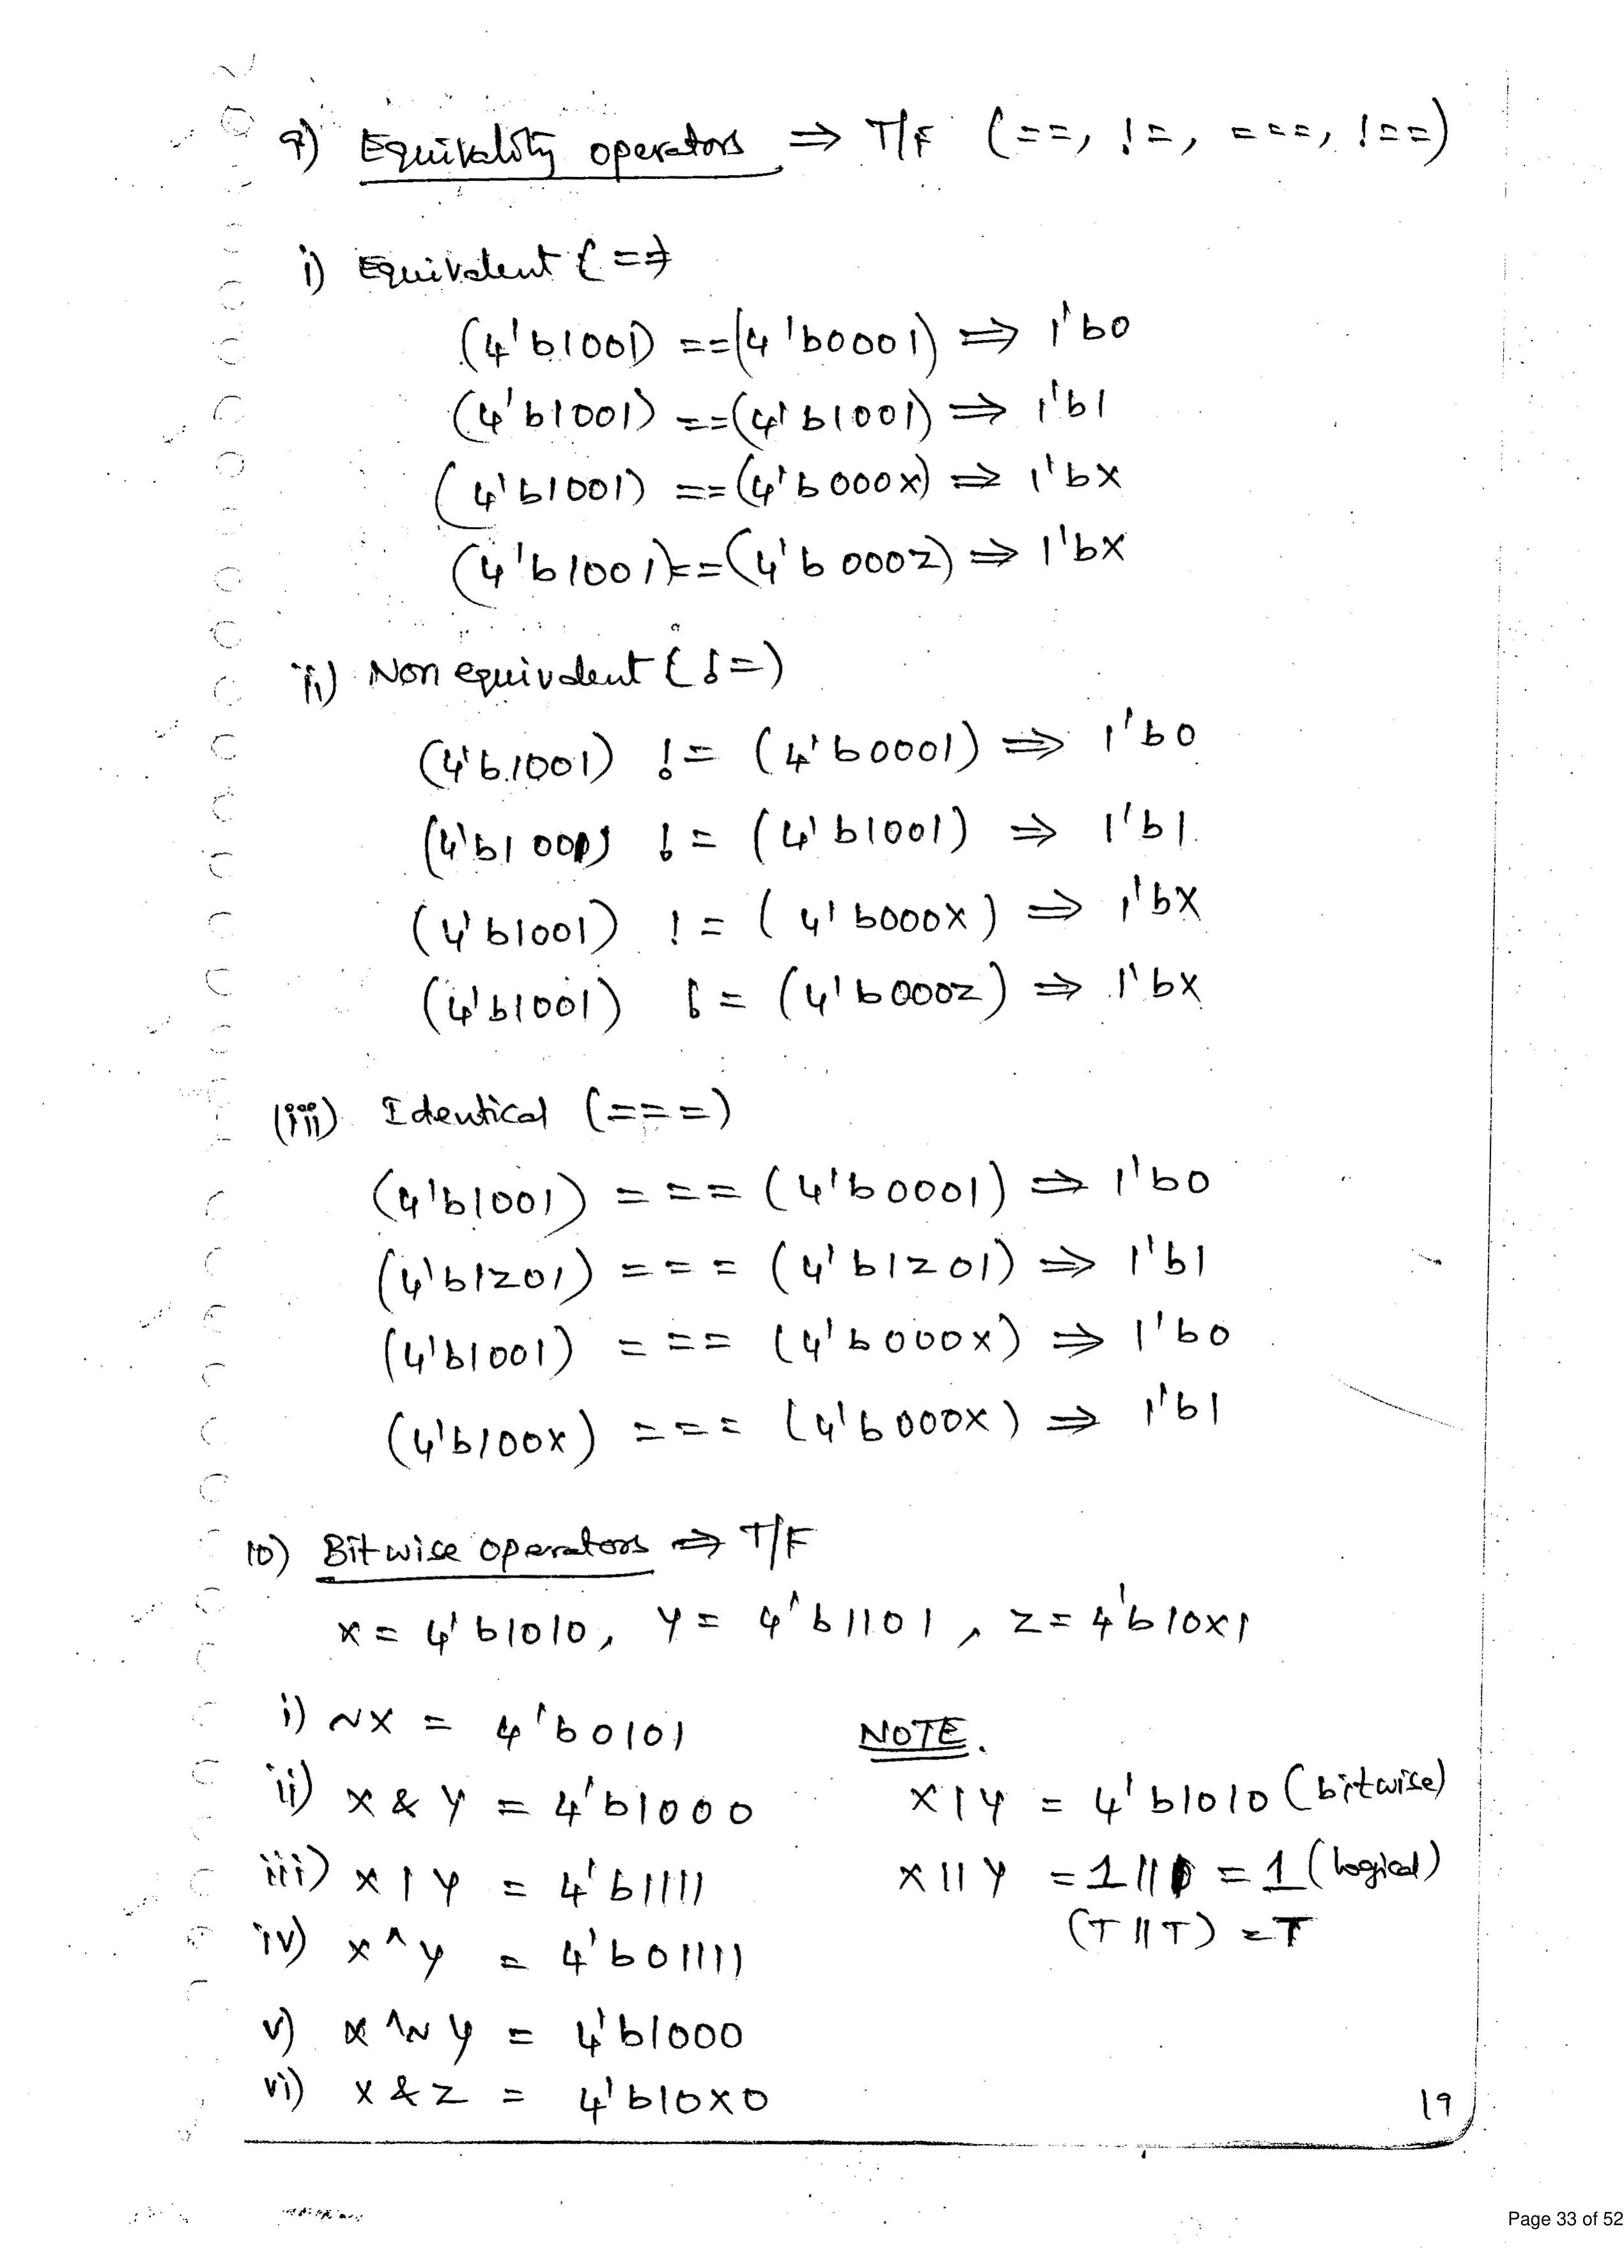 9) Equivality operators ⇒ T/F (==, !=, ===, !==)
i) Equivalent (==)
(4'b1001) ==(4'b0001) ⇒ 1'b0
(4'b1001) ==(4'b1001) ⇒ 1'b1
(4'b1001) ==(4'b000x) ⇒ 1'bx
(4'b1001)==(4'b000z) ⇒ 1'bx
ii) Non equivalent (!=)
(4'b1001) != (4'b0001) ⇒ 1'b0
(4'b1001) != (4'b1001) ⇒ 1'b1
(4'b1001) != (4'b000x) ⇒ 1'bx
(4'b1001) != (4'b000z) ⇒ 1'bx
(iii) Identical (===)
(4'b1001) === (4'b0001) ⇒ 1'b0
(4'b1z01) === (4'b1z01) ⇒ 1'b1
(4'b1001) === (4'b000x) ⇒ 1'b0
(4'b100x) === (4'b000x) ⇒ 1'b1
10) Bitwise operators ⇒ T/F
x = 4'b1010, y = 4'b1101, z = 4'b10x1
i) ~x = 4'b0101
ii) x & y = 4'b1000
iii) x | y = 4'b1111
iv) x ^ y = 4'b01111
v) x ^~ y = 4'b1000
vi) x & z = 4'b10x0
NOTE.
x | y = 4'b1010 (bitwise)
x || y = 1 || 1 = 1 (logical)
(T || T) = T
19
Page 33 of 52